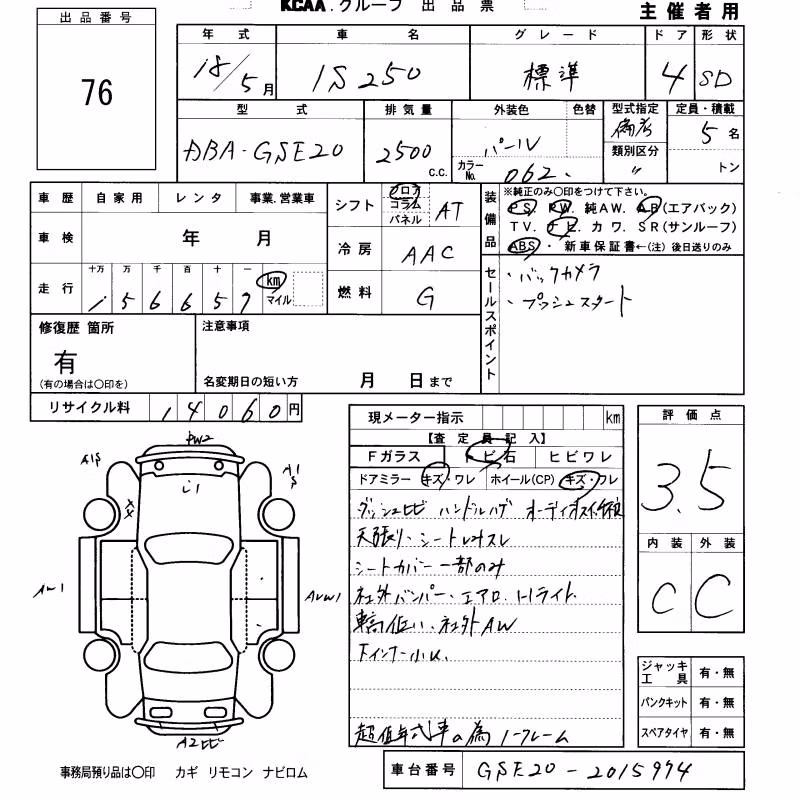 KCAA.グループ 出品票
主催者用
出品番号
76
年式 車名 グレード ドア 形状
18/5月 IS250 標準 4 SD
型式 排気量 外装色 色替 型式指定 定員・積載
DBA-GSE20 2500 C.C. パール 備考 5名
カラーNo. 062. 類別区分 〃 トン
車歴 自家用 レンタ 事業.営業車
車検 年 月
走行 十万 万 千 百 十 一
156657 km マイル
シフト フロア コラム パネル AT
冷房 AAC
燃料 G
装備品
※純正のみ○印をつけて下さい。
PS. PW. 純AW. AB(エアバック)
TV. ナビ. カワ. SR(サンルーフ)
ABS・新車保証書←(注)後日送りのみ
セールスポイント
・バックカメラ
・プッシュスタート
修復歴 箇所
有
(有の場合は○印を)
注意事項
名変期日の短い方 月 日まで
リサイクル料 14060円
現メーター指示 km
【査定員記入】
Fガラス トビ石 ヒビワレ
ドアミラー キズ・ワレ ホイール(CP) キズ・ワレ
ダッシュヒビ ハンドルハゲ オーディオ
天張り、シート
シートカバー一部のみ
社外バンパー、エアロ、H.ライト
車高低い、社外AW
下インナー小
超低年式車の為ノークレーム
評価点
3.5
内装 外装
C C
ジャッキ工具 有・無
パンクキット 有・無
スペアタイヤ 有・無
PW2
A1S
A1
S
XX
AW1
AUW1
A2ヒビ
事務局預り品は○印 カギ リモコン ナビロム
車台番号 GSE20-2015974